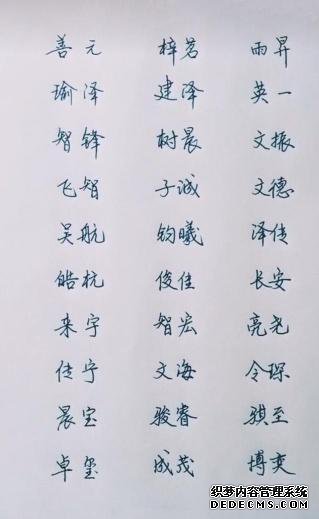 善元 梓茗 雨昇
瑜泽 建泽 英一
智锋 树晨 文振
飞智 子诚 文德
吴航 钧曦 泽传
皓杭 俊佳 长安
来宇 智宏 亮尧
传宁 文海 令琛
晨宝 骏睿 骐至
卓玺 成茂 博奕
织梦内容管理系统
DEDECMS.COM